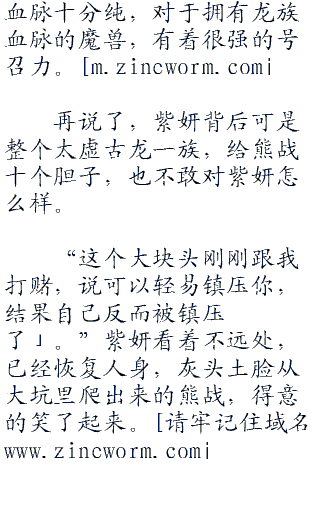 血脉十分纯，对于拥有龙族
血脉的魔兽，有着很强的号
召力。[m.zincworm.com|
再说了，紫妍背后可是
整个太虚古龙一族，给熊战
十个胆子，也不敢对紫妍怎
么样。
“这个大块头刚刚跟我
打赌，说可以轻易镇压你，
结果自己反而被镇压
了」。”紫妍看着不远处，
已经恢复人身，灰头土脸从
大坑里爬出来的熊战，得意
的笑了起来。[请牢记住域名
www.zincworm.com|